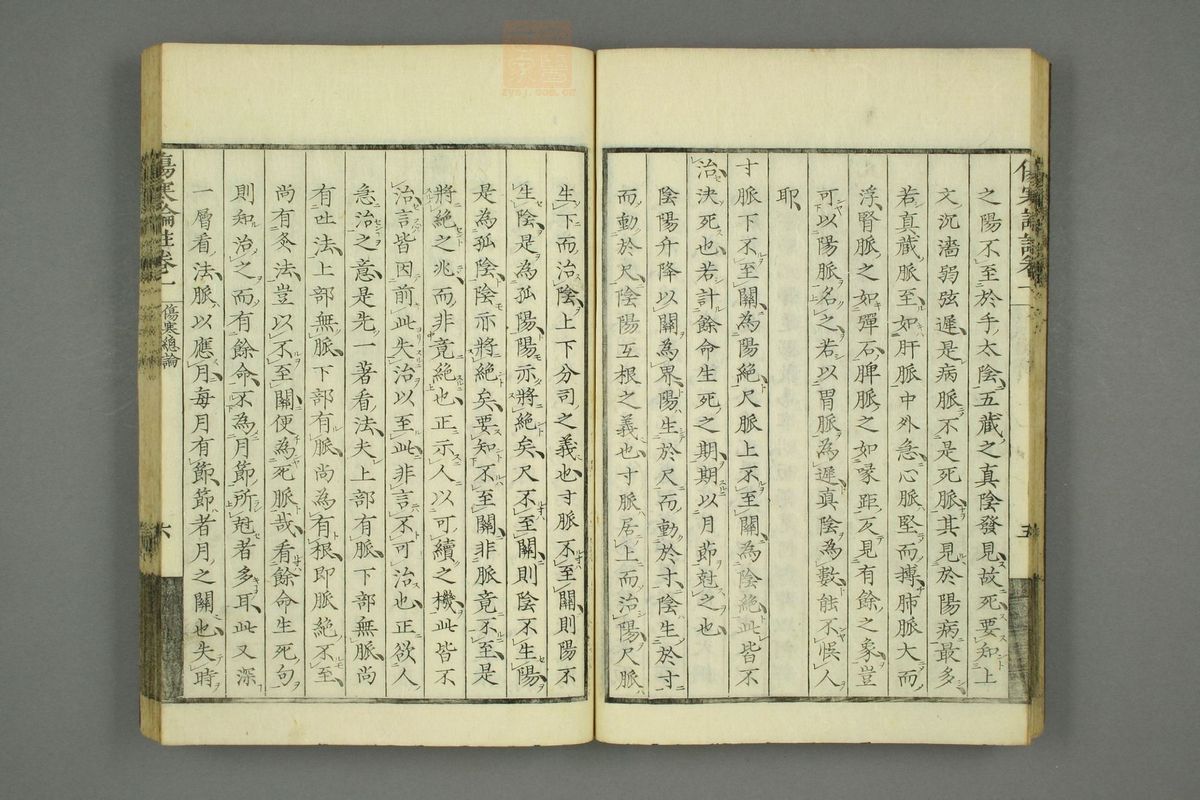 之陽不至於手太陰五藏之真陰發見故死要知上
文沉濇弱弦遲是病脈不是死脈其見於陽病最多
若真藏脈至如肝脈中外急心脈堅而搏肺脈大而
浮腎脈之如彈石脾脈之如喙距反見有餘之象豈
可以陽脈名之若以胃脈為遲真陰為數能不悞人
耶
寸脈下不至關為陽絕尺脈上不至關為陰絕此皆不
治決死也若計餘命生死之期期以月節尅之也
陰陽升降以關為界陽生於尺而動於寸陰生於寸
而動於尺陰陽互根之義也寸脈居上而治陽尺脈
生下而治陰上下分司之義也寸脈不至關則陽不
生陰是為孤陽陽亦將絕矣尺不至關則陰不生陽
是為孤陰陰亦將絕矣要知不至關非脈竟不至是
將絕之兆而非竟絕也正示人以可續之機此皆不
治言皆因前此失治以至此非言不可治也正欲人
急治之意是先一著看法夫上部有脈下部無脈尚
有吐法上部無脈下部有脈尚為有根即脈絕不至
尚有灸法豈以不至關便為死脈哉看餘命生死句
則知治之而有餘命不為月節所尅者多耳此又深
一層看法脈以應月每月有節節者月之關也失時
傷寒論註卷一 傷寒總論
六
五
zysj.com.cn